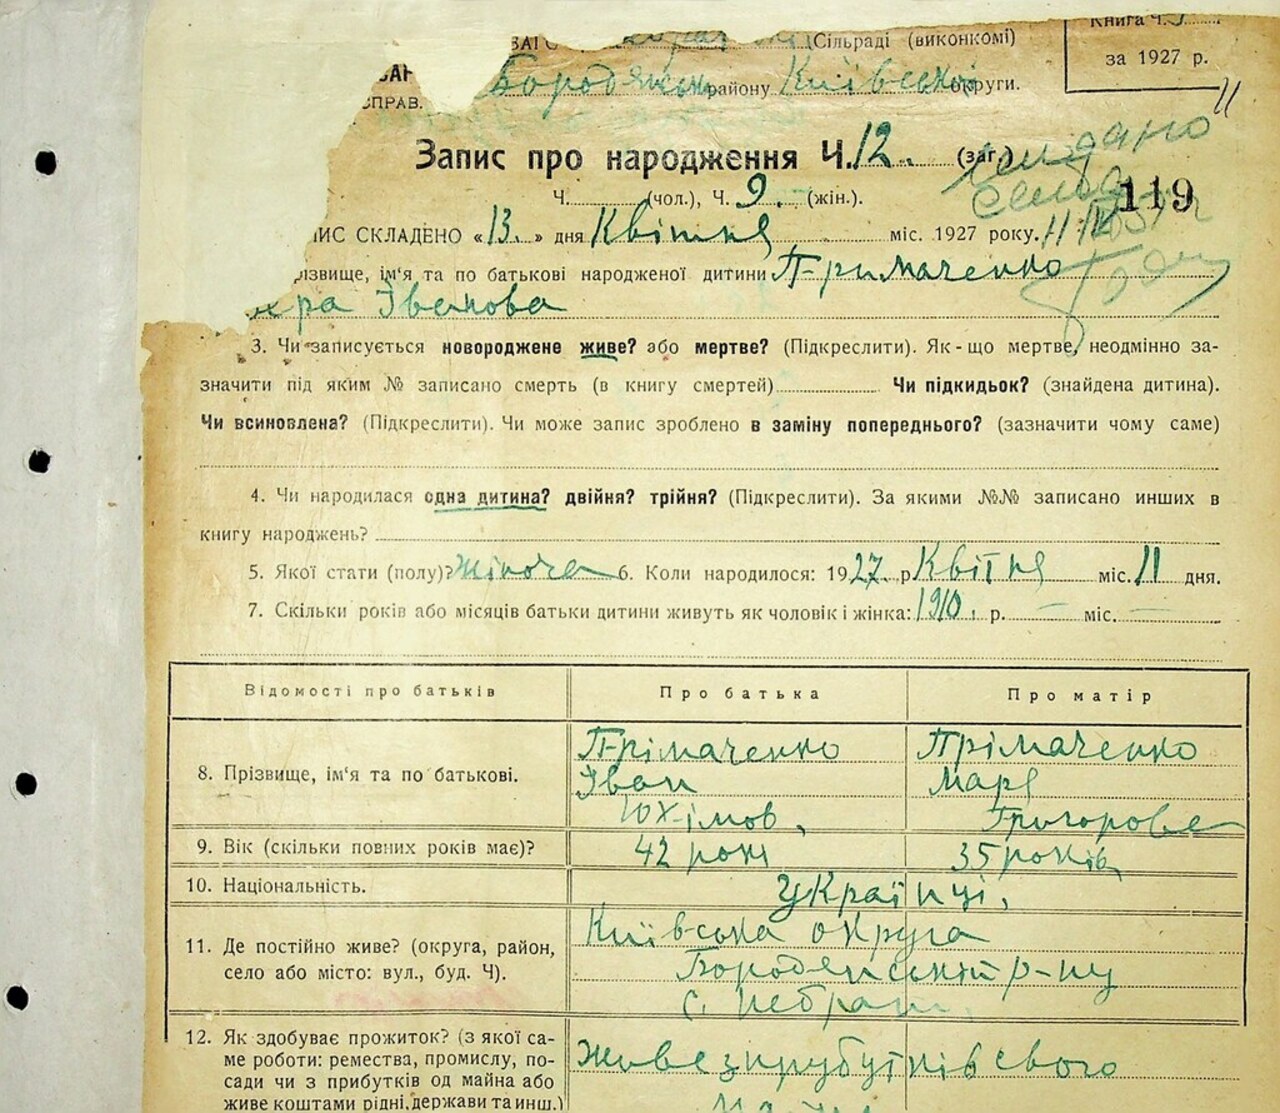 Сільраді (виконкомі)
Книга Ч.
за 1927 р.
Бородянськ району Київської округи.
СПРАВ.
11
Запис про народження Ч. 12. (заг.)
Ч. (чол.), Ч. 9. (жін.).
119
ИС СКЛАДЕНО «13.» дня Квітня міс. 1927 року.
різвище, ім'я та по батькові народженої дитини Примаченко
Іванова
3. Чи записується новороджене живе? або мертве? (Підкреслити). Як-що мертве, неодмінно за-
значити під яким № записано смерть (в книгу смертей) Чи підкидьок? (знайдена дитина).
Чи всиновлена? (Підкреслити). Чи може запис зроблено в заміну попереднього? (зазначити чому саме)
4. Чи народилася одна дитина? двійня? трійня? (Підкреслити). За якими №№ записано инших в
книгу народжень?
5. Якої стати (полу)? жіноча 6. Коли народилося: 1927. р. Квітня міс. 11 дня.
7. Скільки років або місяців батьки дитини живуть як чоловік і жінка: 1910. р. — міс. —
Відомості про батьків Про батька Про матір
8. Прізвище, ім'я та по батькові. Прімаченко Іван Юхімов, Прімаченко Маря Григорове
9. Вік (скільки повних років має)? 42 рокі 35 років
10. Національність. Українці.
11. Де постійно живе? (округа, район,
село або місто: вул., буд. Ч). Київська округа
Бородянській р-ну
с. Небрат.
12. Як здобуває прожиток? (з якої са-
ме роботи: ремества, промислу, по-
сади чи з прибутків од майна або
живе коштами рідні, держави та инш.)
живе з прубутків свого